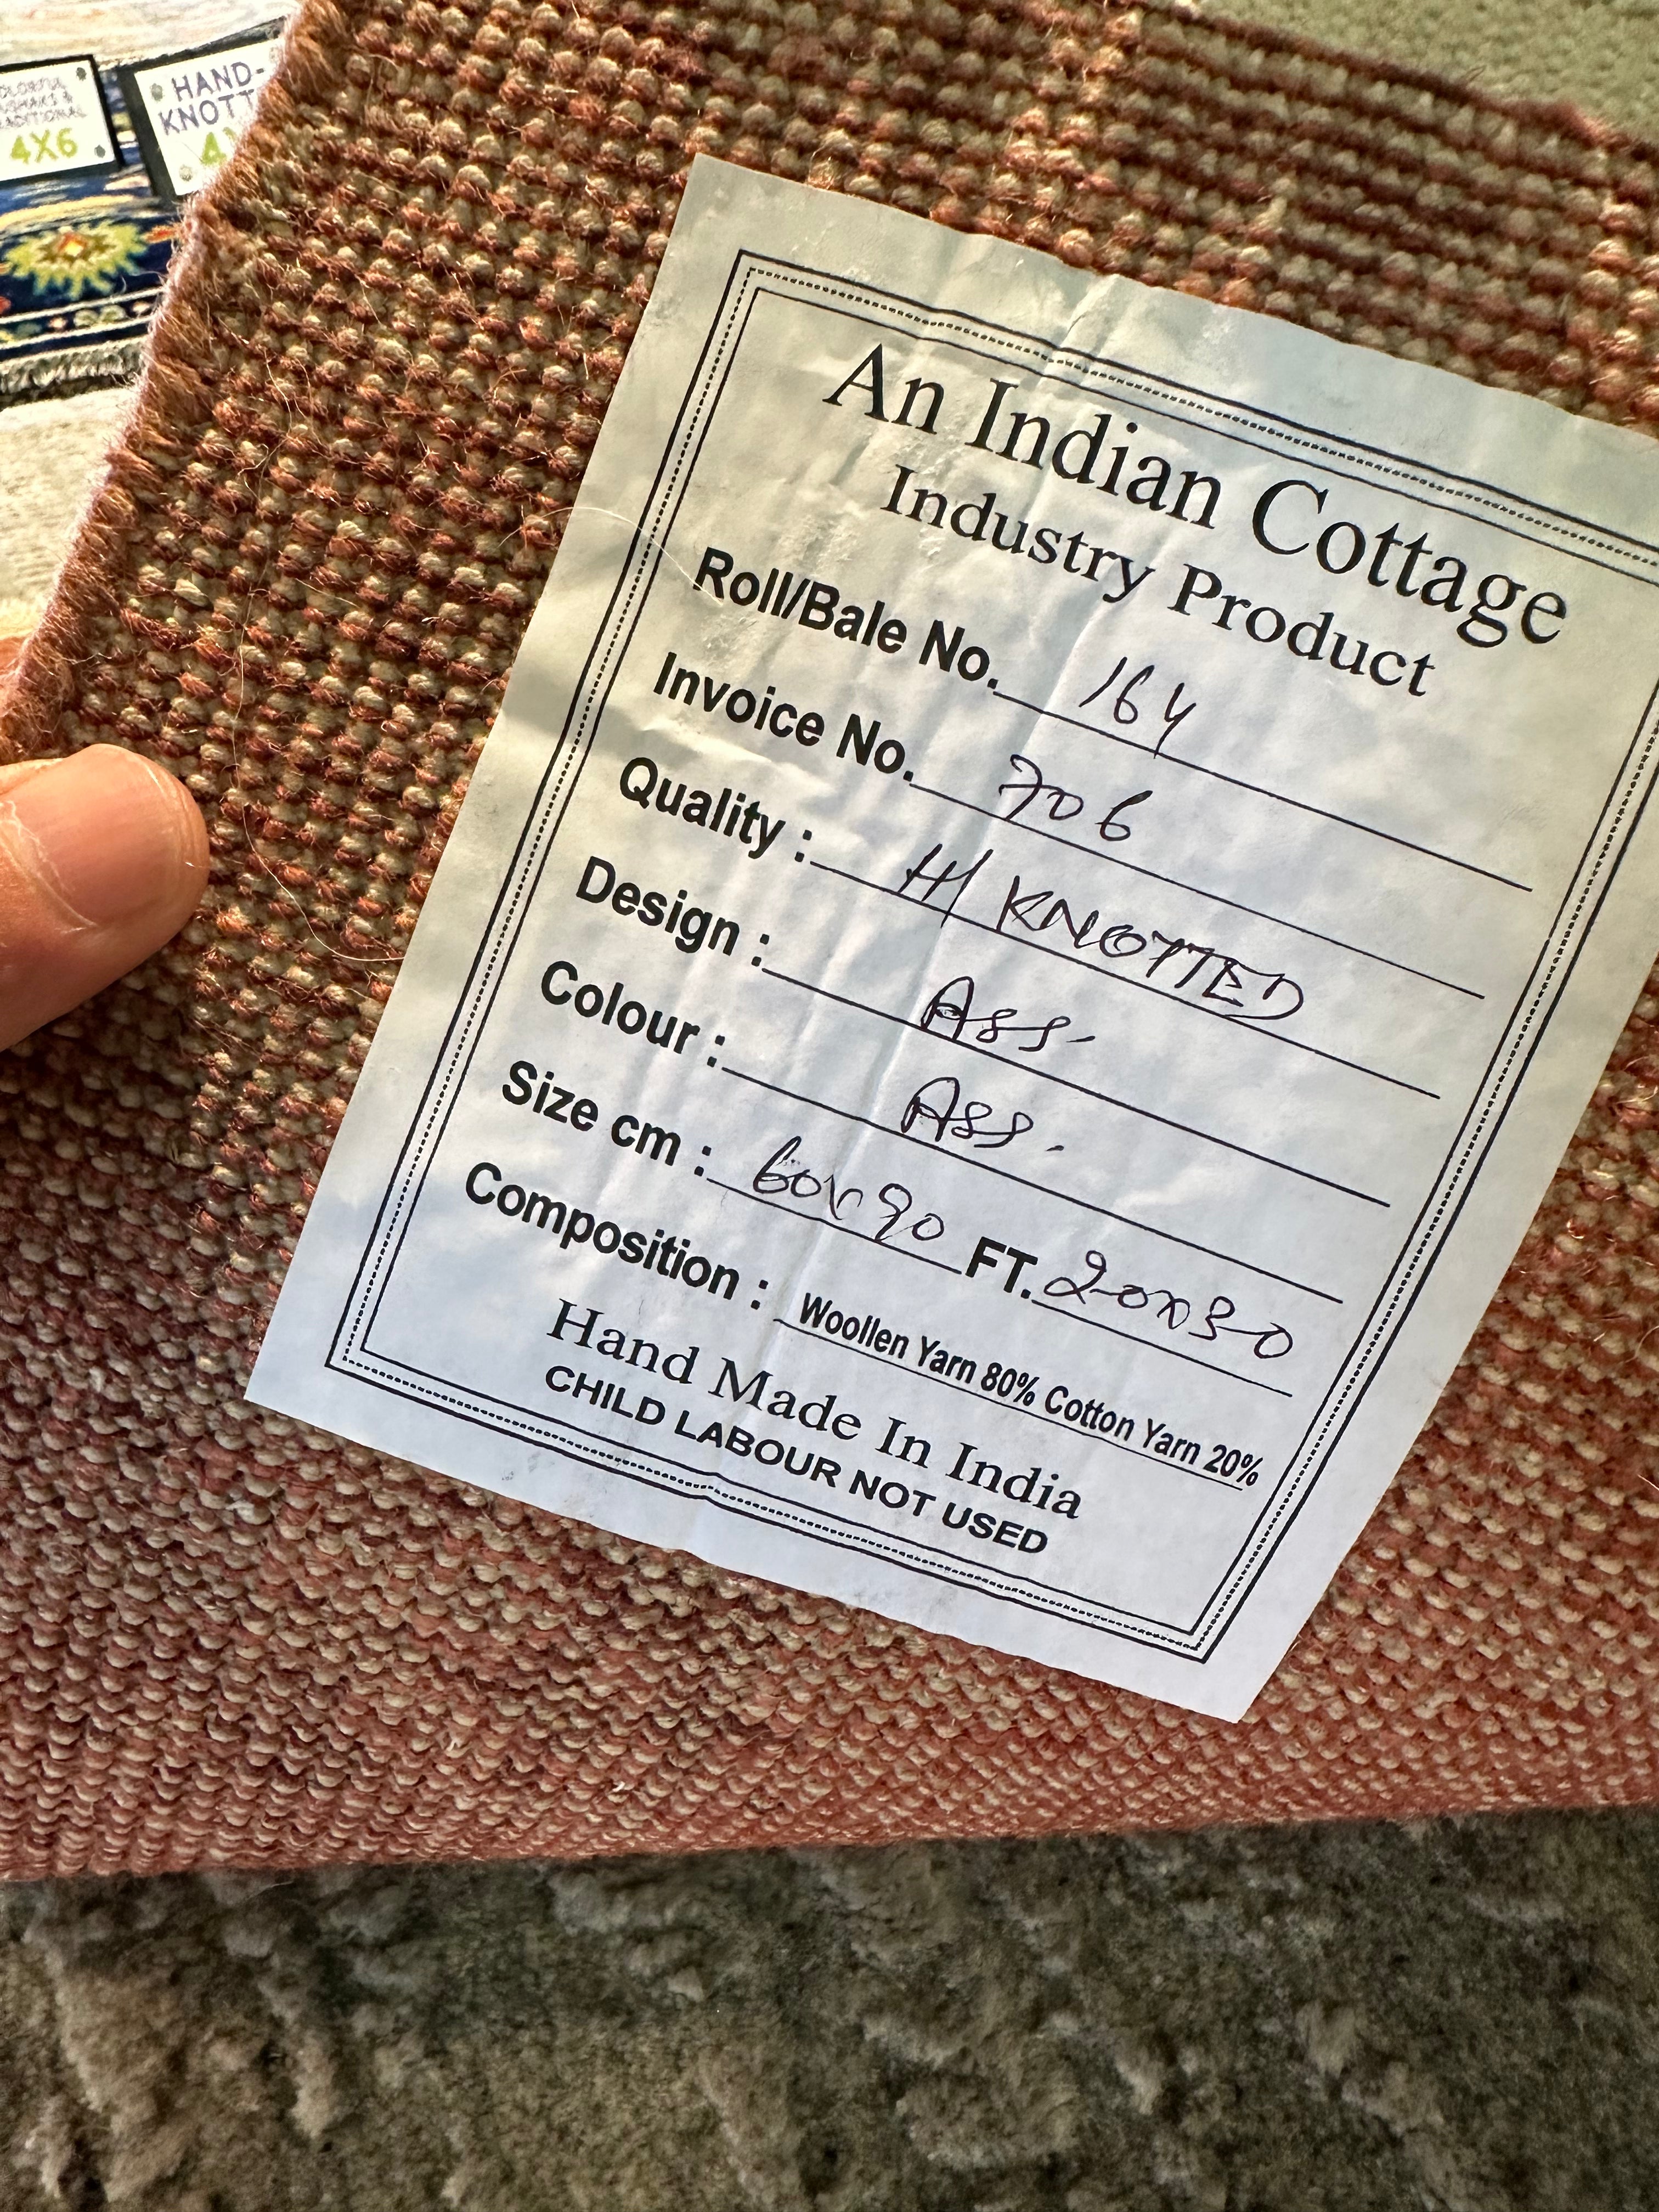 4X6
HAND-
KNOTT
An Indian Cottage
Industry Product
Roll/Bale No. 164
Invoice No. 706
Quality : H/ KNOTTED
Design : Ass.
Colour : Ass.
Size cm : 60x90 FT. 20x30
Composition : Woollen Yarn 80% Cotton Yarn 20%
Hand Made In India
CHILD LABOUR NOT USED